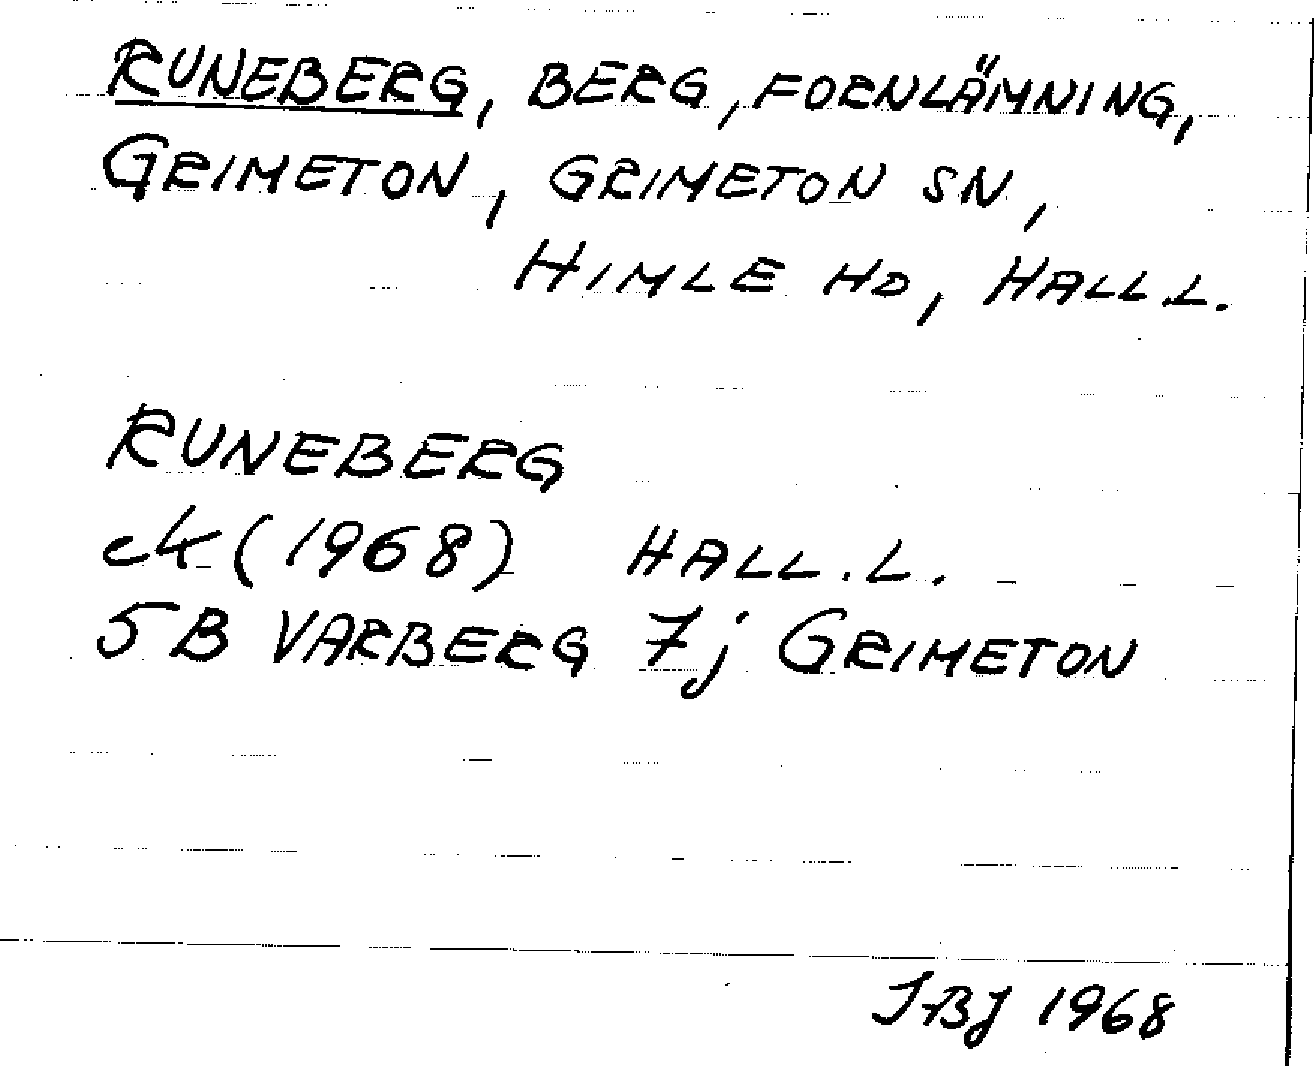 RUNEBERG, BERG, FORNLÄMNING,
GRIMETON, GRIMETON SN,
HIMLE HD, HALL.L.
RUNEBERG
ek (1968) HALL.L.
5B VARBERG 7j GRIMETON
IBJ 1968